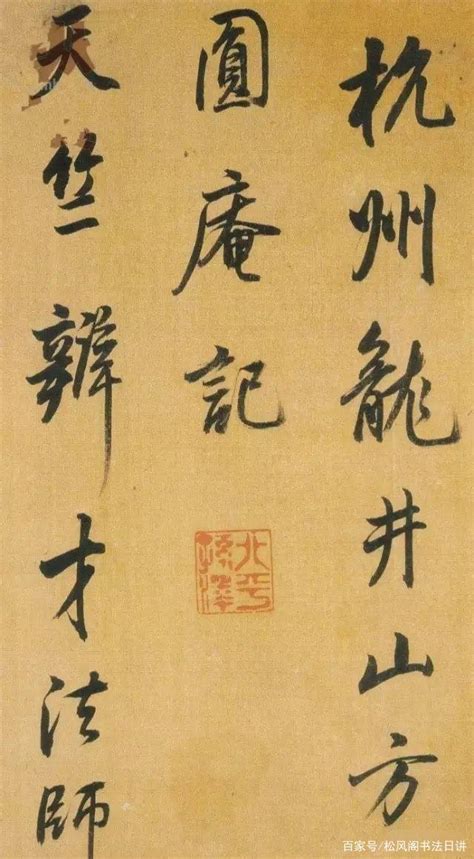 杭州龍井山方
圓庵記
天竺辯才法師
百家号/松风阁书法日讲